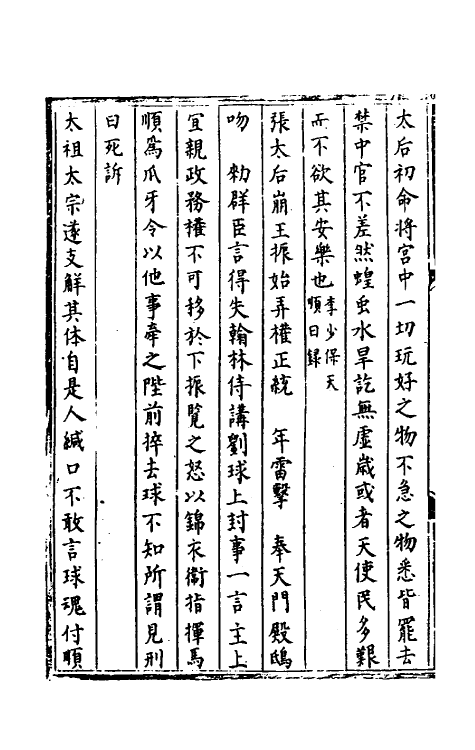 太后初命将宫中一切玩好之物不急之物悉皆罷去
禁中官不差然蝗虫水旱訖無虛歲或者天使民多艱
而不欲其安樂也李少保天順日録
張太后崩王振始弄權正統　年雷擊　奉天門殿鴟
吻　勑群臣言得失翰林侍講劉球上封事一言主上
宜親政務權不可移於下振覧之怒以錦衣衛指揮馬
順為爪牙令以他事牽之陛前捽去球不知所謂見刑
曰死訴
太祖太宗遂支觧其体自是人緘口不敢言球魂付順